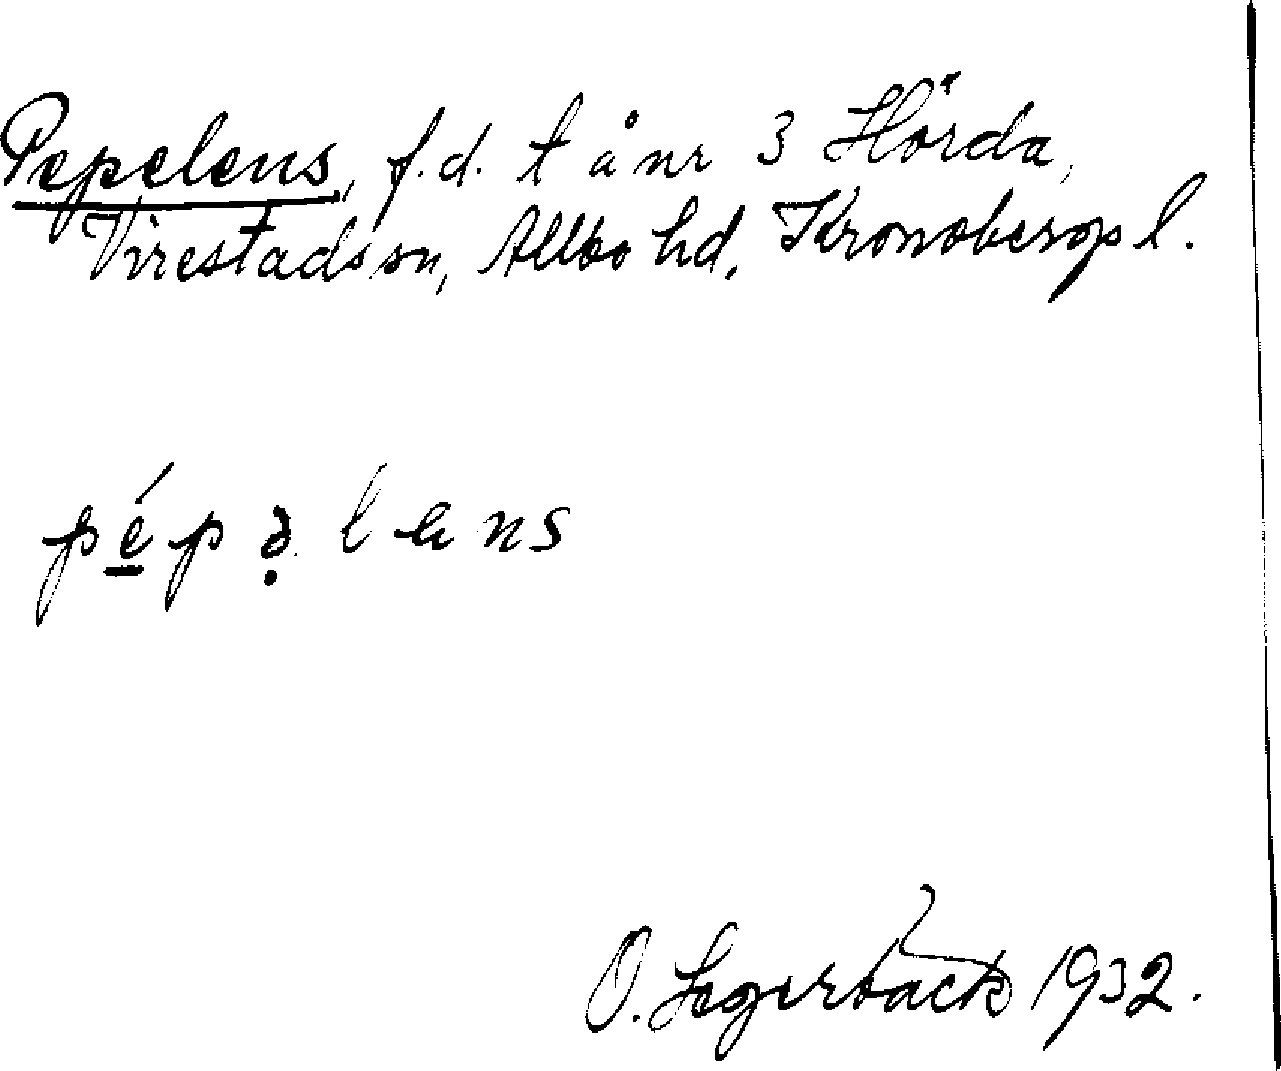 Pepelens, f.d. t å nr 3 Hörda,
Virestads sn, Allbo hd, Kronobergs l.
pépə̣lens
O. Segerbäck 1932.